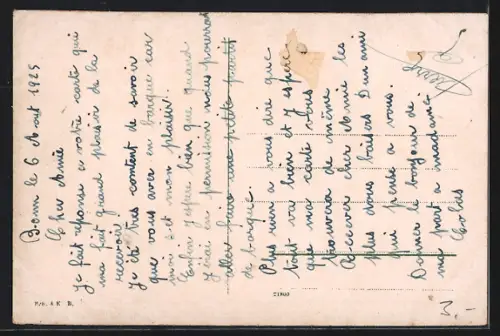 Bonn le 6 Aout 1925
Cher Amie
Je fait reponse a votre carte qui
ma fait grand plaisir de la
recevoir
J'e été tres content de savoir
que vous aver en barque car
moi s'et mon plaisir.
Enfin j'espere bien que quand
J'irai en permission nous pourrons
aller faire une petite partit
de barque.
Plus rien a vous dire que
tout va bien et j'espere
que ma carte vous
trouvera de même
Recever cher Amie les
plus doux baisers Dun ami
qui pense a vous.
Donner le bonjour de
ma part a madame
Colas
Pierre
3.-